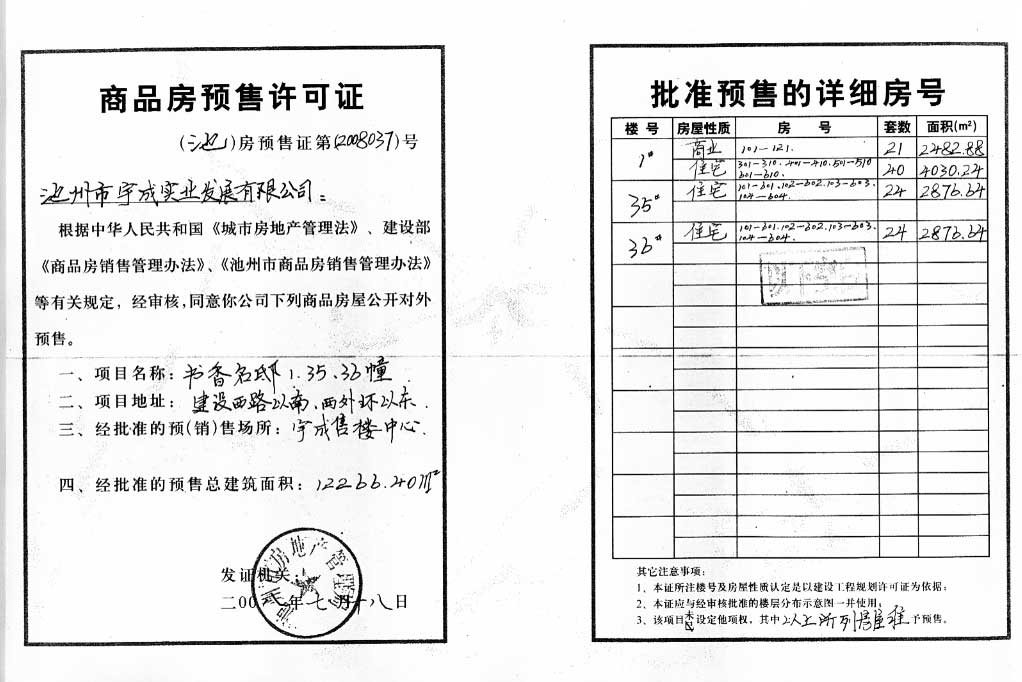 商品房预售许可证
(池)房预售证第(2008037)号
池州市宇成实业发展有限公司:
根据中华人民共和国《城市房地产管理法》、建设部
《商品房销售管理办法》、《池州市商品房销售管理办法》
等有关规定，经审核，同意你公司下列商品房屋公开对外
预售。
一、项目名称：书香名邸1.35.36幢
二、项目地址：建设西路以南、西外环以东.
三、经批准的预(销)售场所：宇成售楼中心.
四、经批准的预售总建筑面积：12266.40m²
发证机关：
二00八年七月十八日
房地产管理
批准预售的详细房号
楼号 房屋性质 房号 套数 面积(m²)
1# 商业 101-121. 21 2482.88
住宅 301-310.401-410.501-510 40 4030.24
601-610.
35# 住宅 101-601.102-602.103-603. 24 2876.64
104-604.
36# 住宅 101-601.102-602.103-603. 24 2876.64
104-604.
以下空白
其它注意事项：
1、本证所注楼号及房屋性质认定是以建设工程规划许可证为依据；
2、本证应与经审核批准的楼层分布示意图一并使用；
3、该项目未已设定他项权，其中以上所列房屋准予预售。